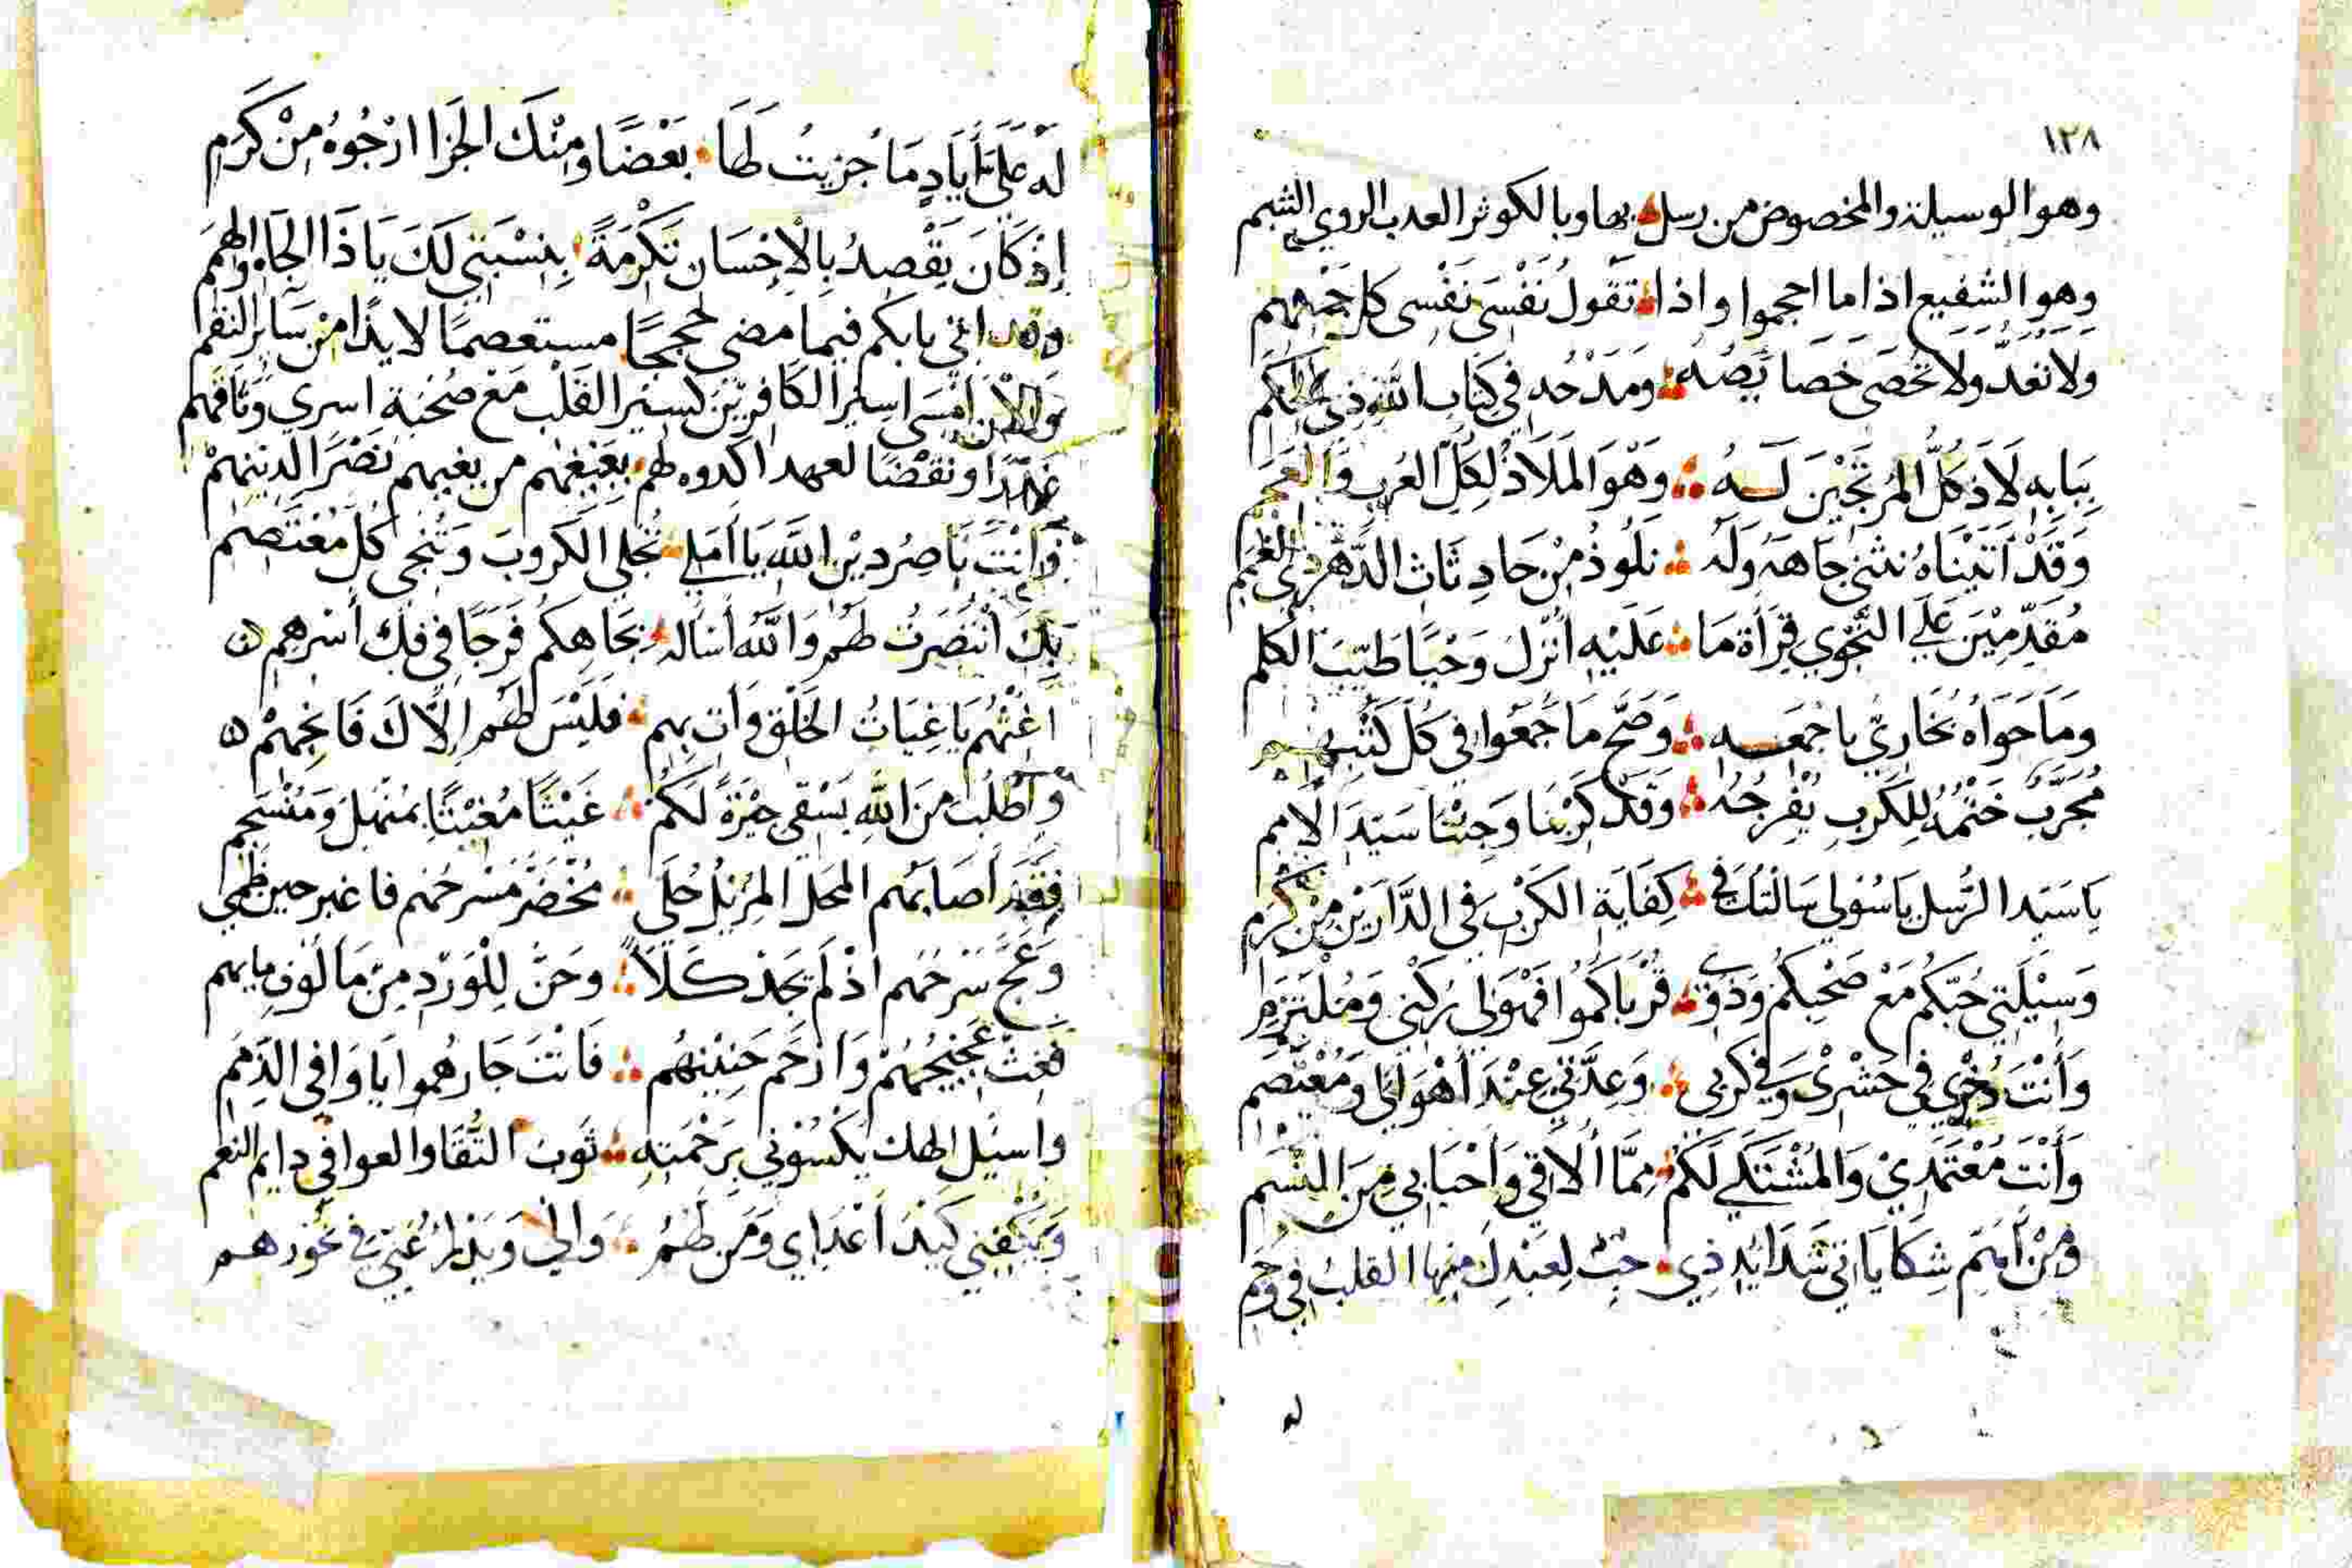 ١٢٨
وهو الوسيلة والمخصوص من رسل بها وبالكوثر العدب الروي الشبم
وهو الشفيع اذا ما احجموا واذا تَقُولُ نَفْسِي نَفْسِي كل جَمْعِهِم
ولا تعَدّ ولا تُحْصَى خَصَايَصُهُ وَمَدْحُه في كِتَابِ اللَّهِ ذِي
بِبَابِهِ لَاذَ كُلُّ المُرتَجِيْنَ لَهُ وَهْوَ المَلَاذُ لِكُلّ العُرب وَالعَجَم
وَقَدْ اَتَيْنَاهُ نَنْثَنِي جَاهَهُ وَلَهُ نَلُوذُ مِنْ حَادِثَاتِ الدَّهْرِ ذِي الغُمَم
مُقَدِّمِيْنَ عَلَى النَّجْوِي قِرَأة مَا عَلَيْهِ اُنْزلَ وَحْيًا طَيّبَ الكلم
ومَا حَوَاهُ بُخَارِيّ باجْمَعِهِ وَصَحَّ مَا جَمَعُوا في كُلّ كُتْبِهِم
مُجَرَّبٌ خَتْمُهُ لِلكَرْبِ يُفْرِجُهُ وَقَدْ كَرَبْنَا وَجِئْنَا سَيّدَ الأمم
يَا سَيّدَ الرُّسل يَا سُؤلي سَالتُكَ في كِفَايَةِ الكَرْبِ فِي الدَّارَيْنِ مِنْ كَرَم
وَسِيْلَتِي حُبّكُم مَعْ صَحْبِكُمْ وَذَوِي قُرْبَاكُمُوا فَهْوَ لِي رُكْنِي وَمُلْتَزَمِ
وَأَنْتَ ذُخْرِي فِي حَشْرِي وَفي كُرَبي وَعِدَّتي عِنْدَ أهْوَالِي وَمُعْتَصَم
وَأَنْتَ مُعْتَمَدِيْ وَالمُشْتَكَي لَكُمْ مِمَّا اُلَاقي وَأحْبَابِي مِنَ النّسَم
وَمِنْ أَهَمّ شِكَايَاتي شَدَايُدِ ذِي حِبّ لِعَبْدِكَ مِنهَا القلبُ فِي
له
له عَلَيّ أَيَادٍ مَا جُزِيتُ لَهَا بَعْضًا وَمِنْكَ الجَزَا ارْجُوهُ مِنْ كَرَمِ
إِذ كَانَ يَقْصِدُ بِالإحْسَانِ تَكْرِمَةً بِنِسْبَتِي لَكَ يَا ذَا الجَاهِ وَالهِمَم
وقد اتي بابكم فيما مضى حججًا مستعصمًا لايذًا مِنْ سَاير النقم
وَالآن أمْسَى اسير الكَافِرِيْنَ كَسِيْر القَلْب مَعْ صُحْبَةٍ اسري وَثَاقِهم
غَدْرًا ونَقْضًا لعهد اكدوه لهم بغيهم نَصْرًا لدينهمْ
وَأَنْتَ نَاصِرُ دِيْنِ اللَّهِ يَا أَمَلي تُجْلي الكُرُوبَ وَتُنْجِي كُلّ مُعْتَصِم
بِكَ انْتَصَرْتُ لَهُم وَاللَّهَ أسْأله بجَاهِكُم فَرَجًا فِي فكّ أسْرِهِم
أَغِثْهُم يَا غِيَاثُ الخَلْقِ وَأتِ بِهِم فَلَيْسَ لَهُم إِلَّاكَ فَانجِهِمْ
وَأطْلُبْ مِنَ اللهِ يَسْقى جِيْرَةً لَكُمْ غَيْثًا مُغِيْثًا بمُنْهَلّ وَمُنْسَجِم
فَقَدْ أَصَابَهُم المحَل المزيْلُ حُلَى مُخْضَرّ مَسْرحُهُم فاغبر حين ظمي
وَعَجّ سَرْحُهُم اذْ لَم يَجدْ كَلًا وحَنَّ لِلْوِرْدِ مِنْ مَألُوفِ مايهم
فَغِثْ عَجِيْجَهُمْ وَارْحَم حَنِيْنَهُم فَانْتَ جَارهُموا يَا وَافِي الذّمَم
واسئل الهك يَكْسُوْني بِرَحْمَتِهِ ثَوْبَ التُّقَا والعوافي دايم النعم
وَيَكْفِنِي كَيْدَ أَعْدَاي وَمَن لَهُمُ وَالِي وَيَدْرَأُ عَنّي فِي نحُورهم